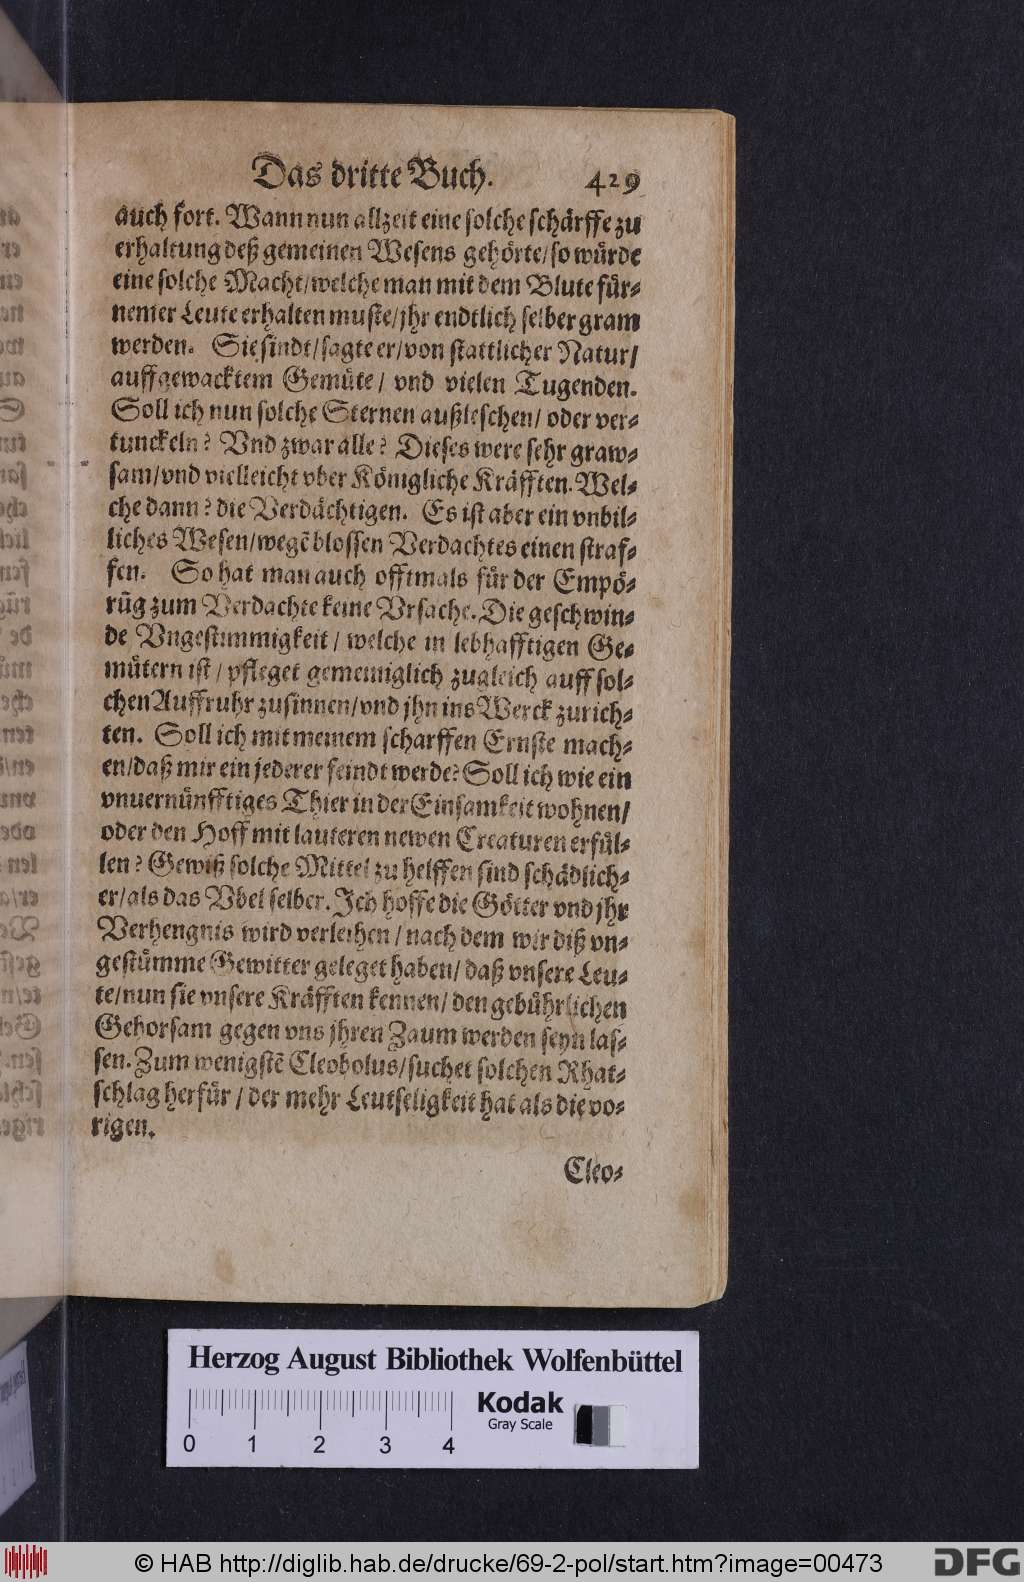 Das dritte Buch. 429
auch fort. Wann nun allzeit eine solche schärffe zu
erhaltung deß gemeinen Wesens gehörte/ so würde
eine solche Macht/ welche man mit dem Blute für-
nemer Leute erhalten muste/ jhr endtlich selber gram
werden. Sie sindt/ sagte er/ von stattlicher Natur/
auffgewacktem Gemüte/ vnd vielen Tugenden.
Soll ich nun solche Sternen außleschen/ oder ver-
tunckeln? Vnd zwar alle? Dieses were sehr graw-
sam/ vnd vielleicht vber Königliche Kräfften. Wel-
che dann? die Verdächtigen. Es ist aber ein vnbil-
liches Wesen/ wegē blossen Verdachtes einen straf-
fen. So hat man auch offtmals für der Empö-
rūg zum Verdachte keine Vrsache. Die geschwin-
de Vngestimmigkeit/ welche in lebhafftigen Ge-
mütern ist/ pfleget gemeiniglich zugleich auff sol-
chen Auffruhr zusinnen/ vnd jhn ins Werck zurich-
ten. Soll ich mit meinem scharffen Ernste mach-
en/ daß mir ein jederer feindt werde? Soll ich wie ein
vnuernünfftiges Thier in der Einsamkeit wohnen/
oder den Hoff mit lauteren newen Creaturen erfül-
len? Gewiß solche Mittel zu helffen sind schädlich-
er/ als das Vbel selber. Ich hoffe die Götter vnd jhr
Verhengnis wird verleihen/ nach dem wir diß vn-
gestümme Gewitter geleget haben/ daß vnsere Leu-
te/ nun sie vnsere Kräfften kennen/ den gebührlichen
Gehorsam gegen vns jhren Zaum werden seyn las-
sen. Zum wenigstē Cleobolus/ suchet solchen Rhat-
schlag herfür/ der mehr Leutseligkeit hat als die vo-
rigen.
Cleo-
Herzog August Bibliothek Wolfenbüttel
Kodak
Gray Scale
0 1 2 3 4
© HAB http://diglib.hab.de/drucke/69-2-pol/start.htm?image=00473
DFG